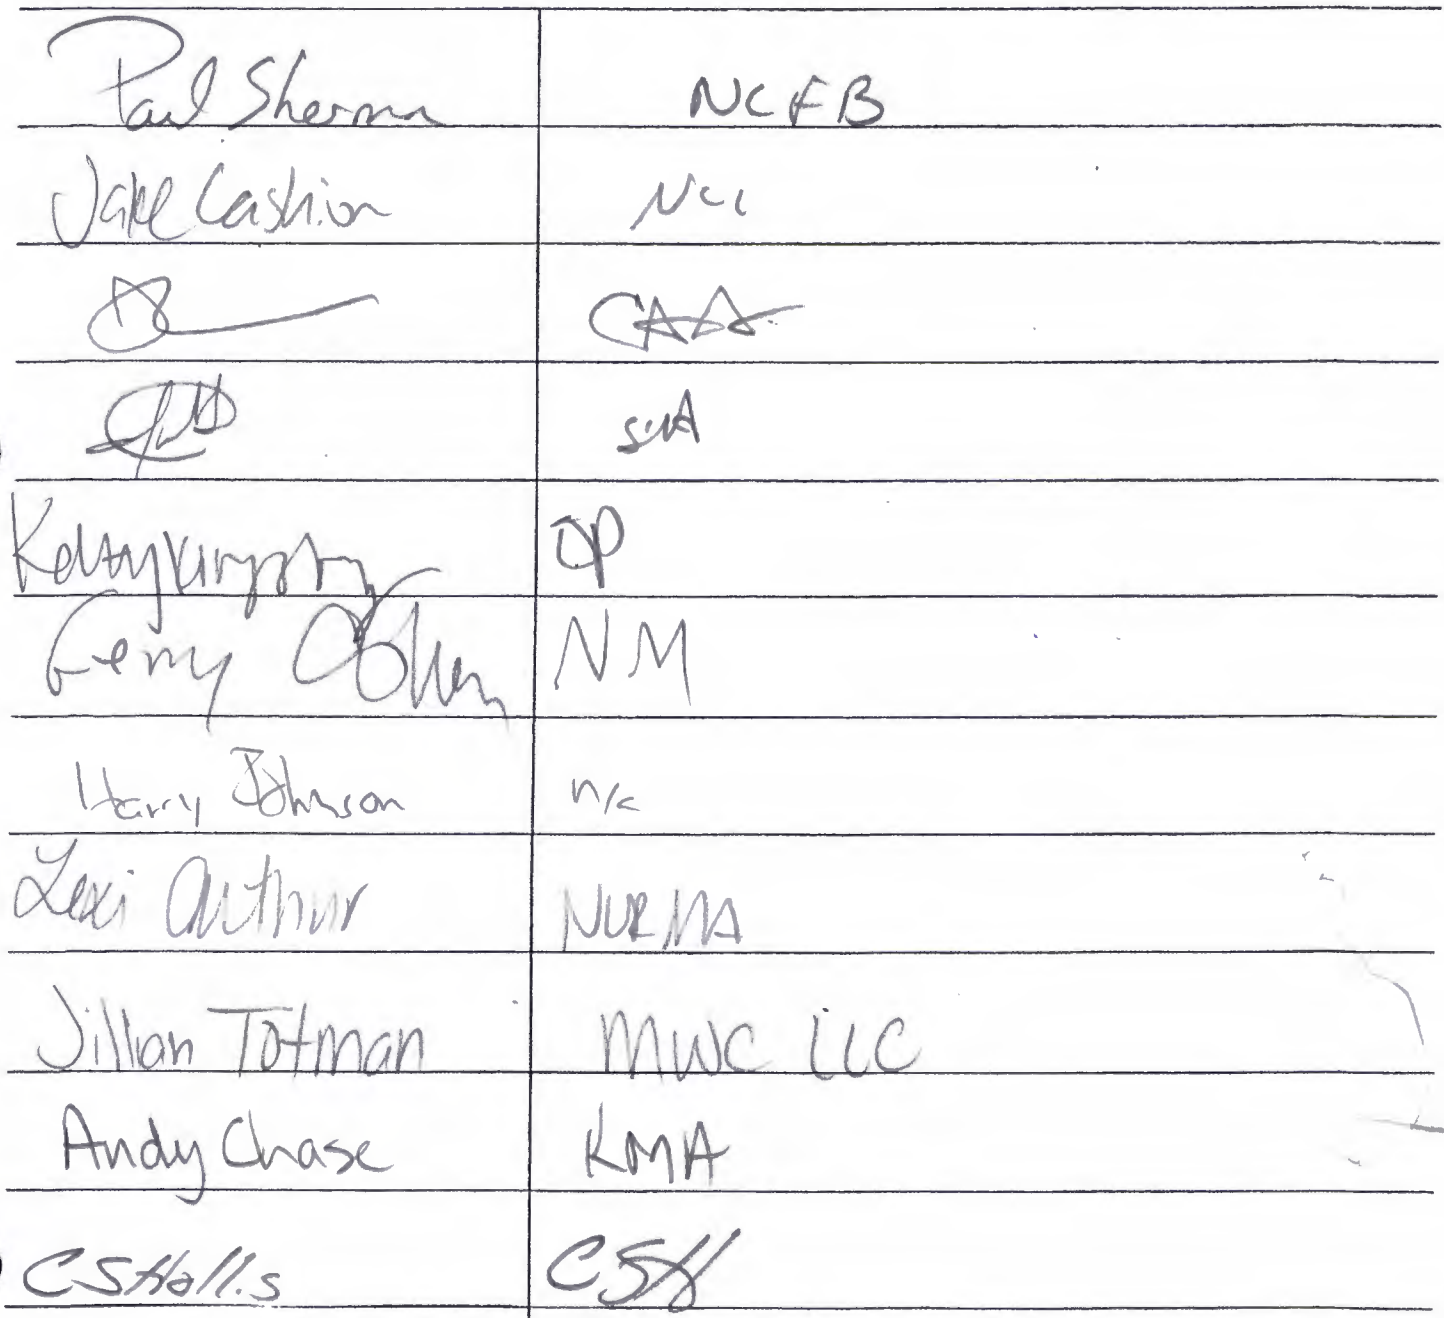 Paul Sherman NCFB
Jake Cashion NCC
CAAA
Gerry Cohen NM
Harry Johnson n/c
Lexi Arthur NCRMA
Jillian Totman MWC LLC
Andy Chase KMA
CSHollis CSH